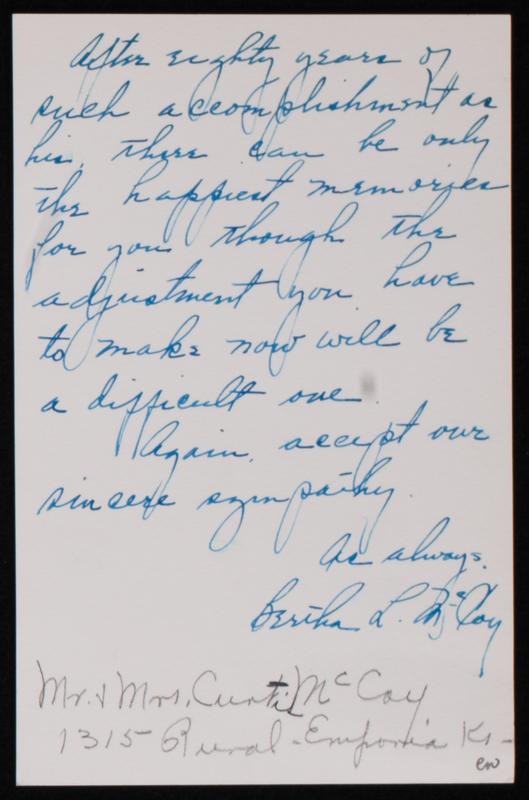 After eighty years of
such accomplishment as
his, there can be only
the happiest memories
for you though the
adjustment you have
to make now will be
a difficult one.
Again, accept our
sincere sympathy.
As always,
Bertha L. McCoy
Mr. & Mrs. Curtis McCoy
1315 Rural - Emporia Ks -
en